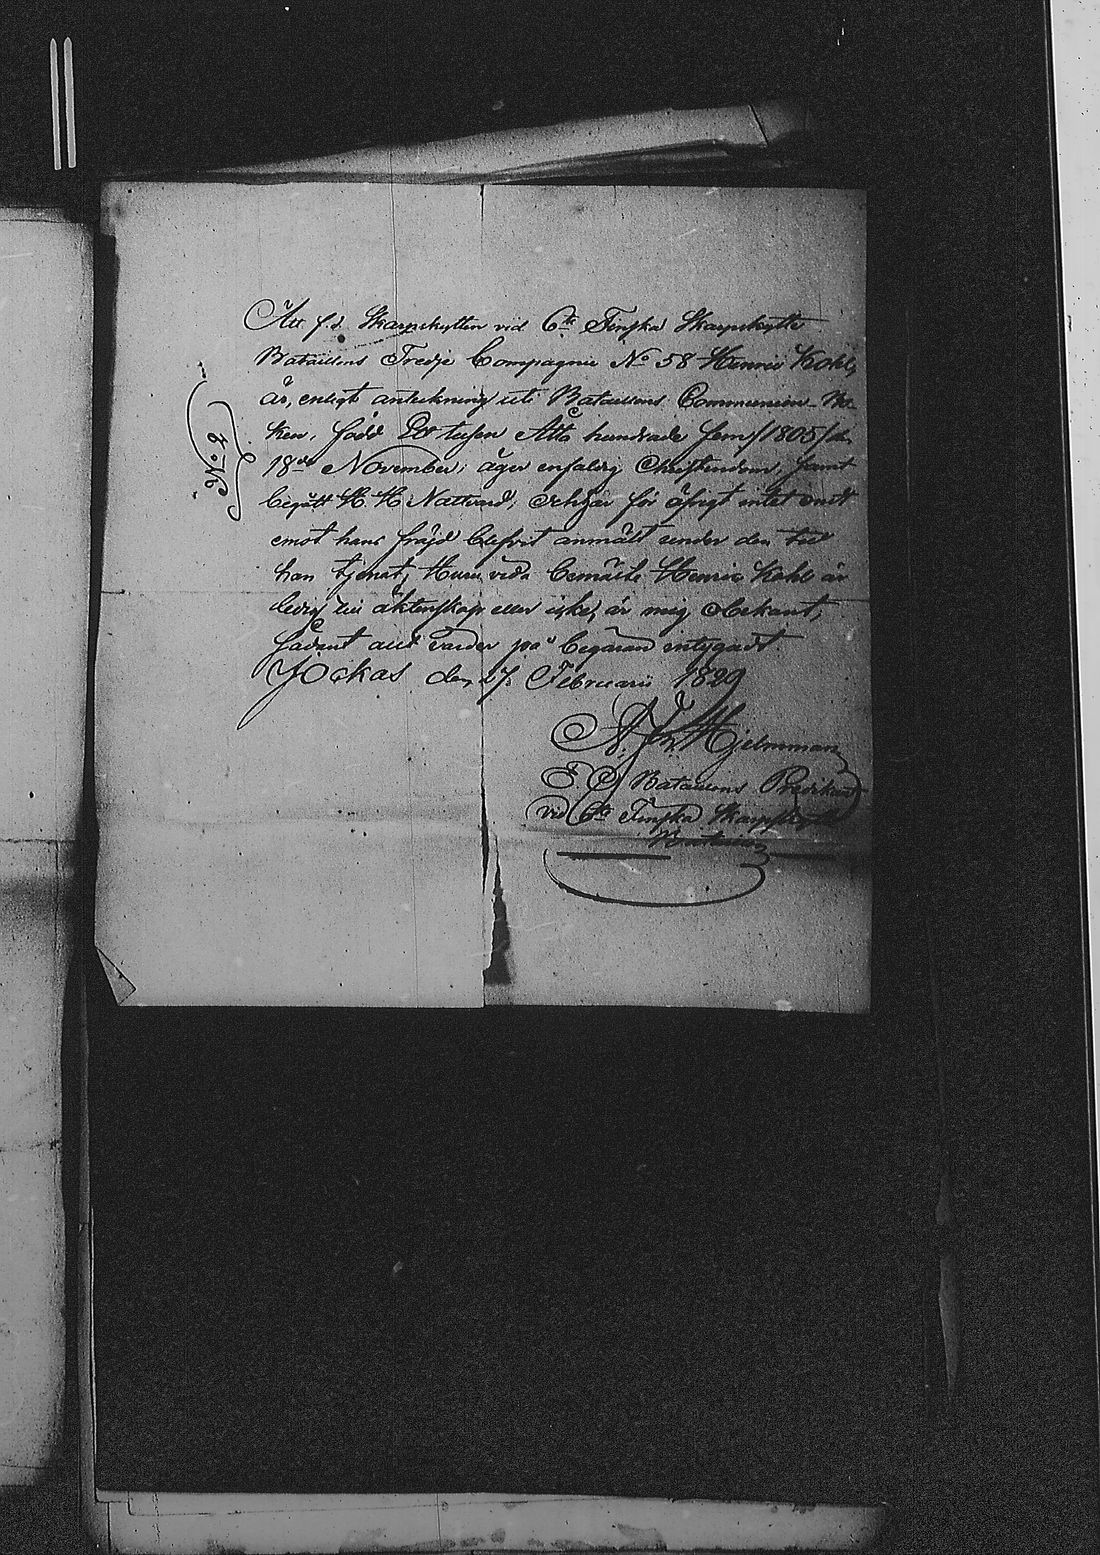 Att f.d. Skarpskytten vid 6te Finska Skarpskytte
Bataillons Tredje Compagnie No 58 Henric Kohl,
är, enligt anteckning uti Bataillons Communion-Bo-
ken, född Ett tusen Åtta hundrade fem /1805/ d.
18de November; äger enfaldig Christendom, samt
begått H. H. Nattvard, och har för öfrigt intet ondt
emot hans frägd blifvit anmält under den tid
han tjenat; Huru vida bemälte Henric Kohl är
ledig till äktenskap eller icke, är mig obekant,
Sådant allt varder på begäran intygadt.
Jockas den 27 Februarii 1829
A. Fr. Hjelmman
E. O. Bataillons Predikant
vid 6te Finska Skarpskytte
Bataillon
No 2